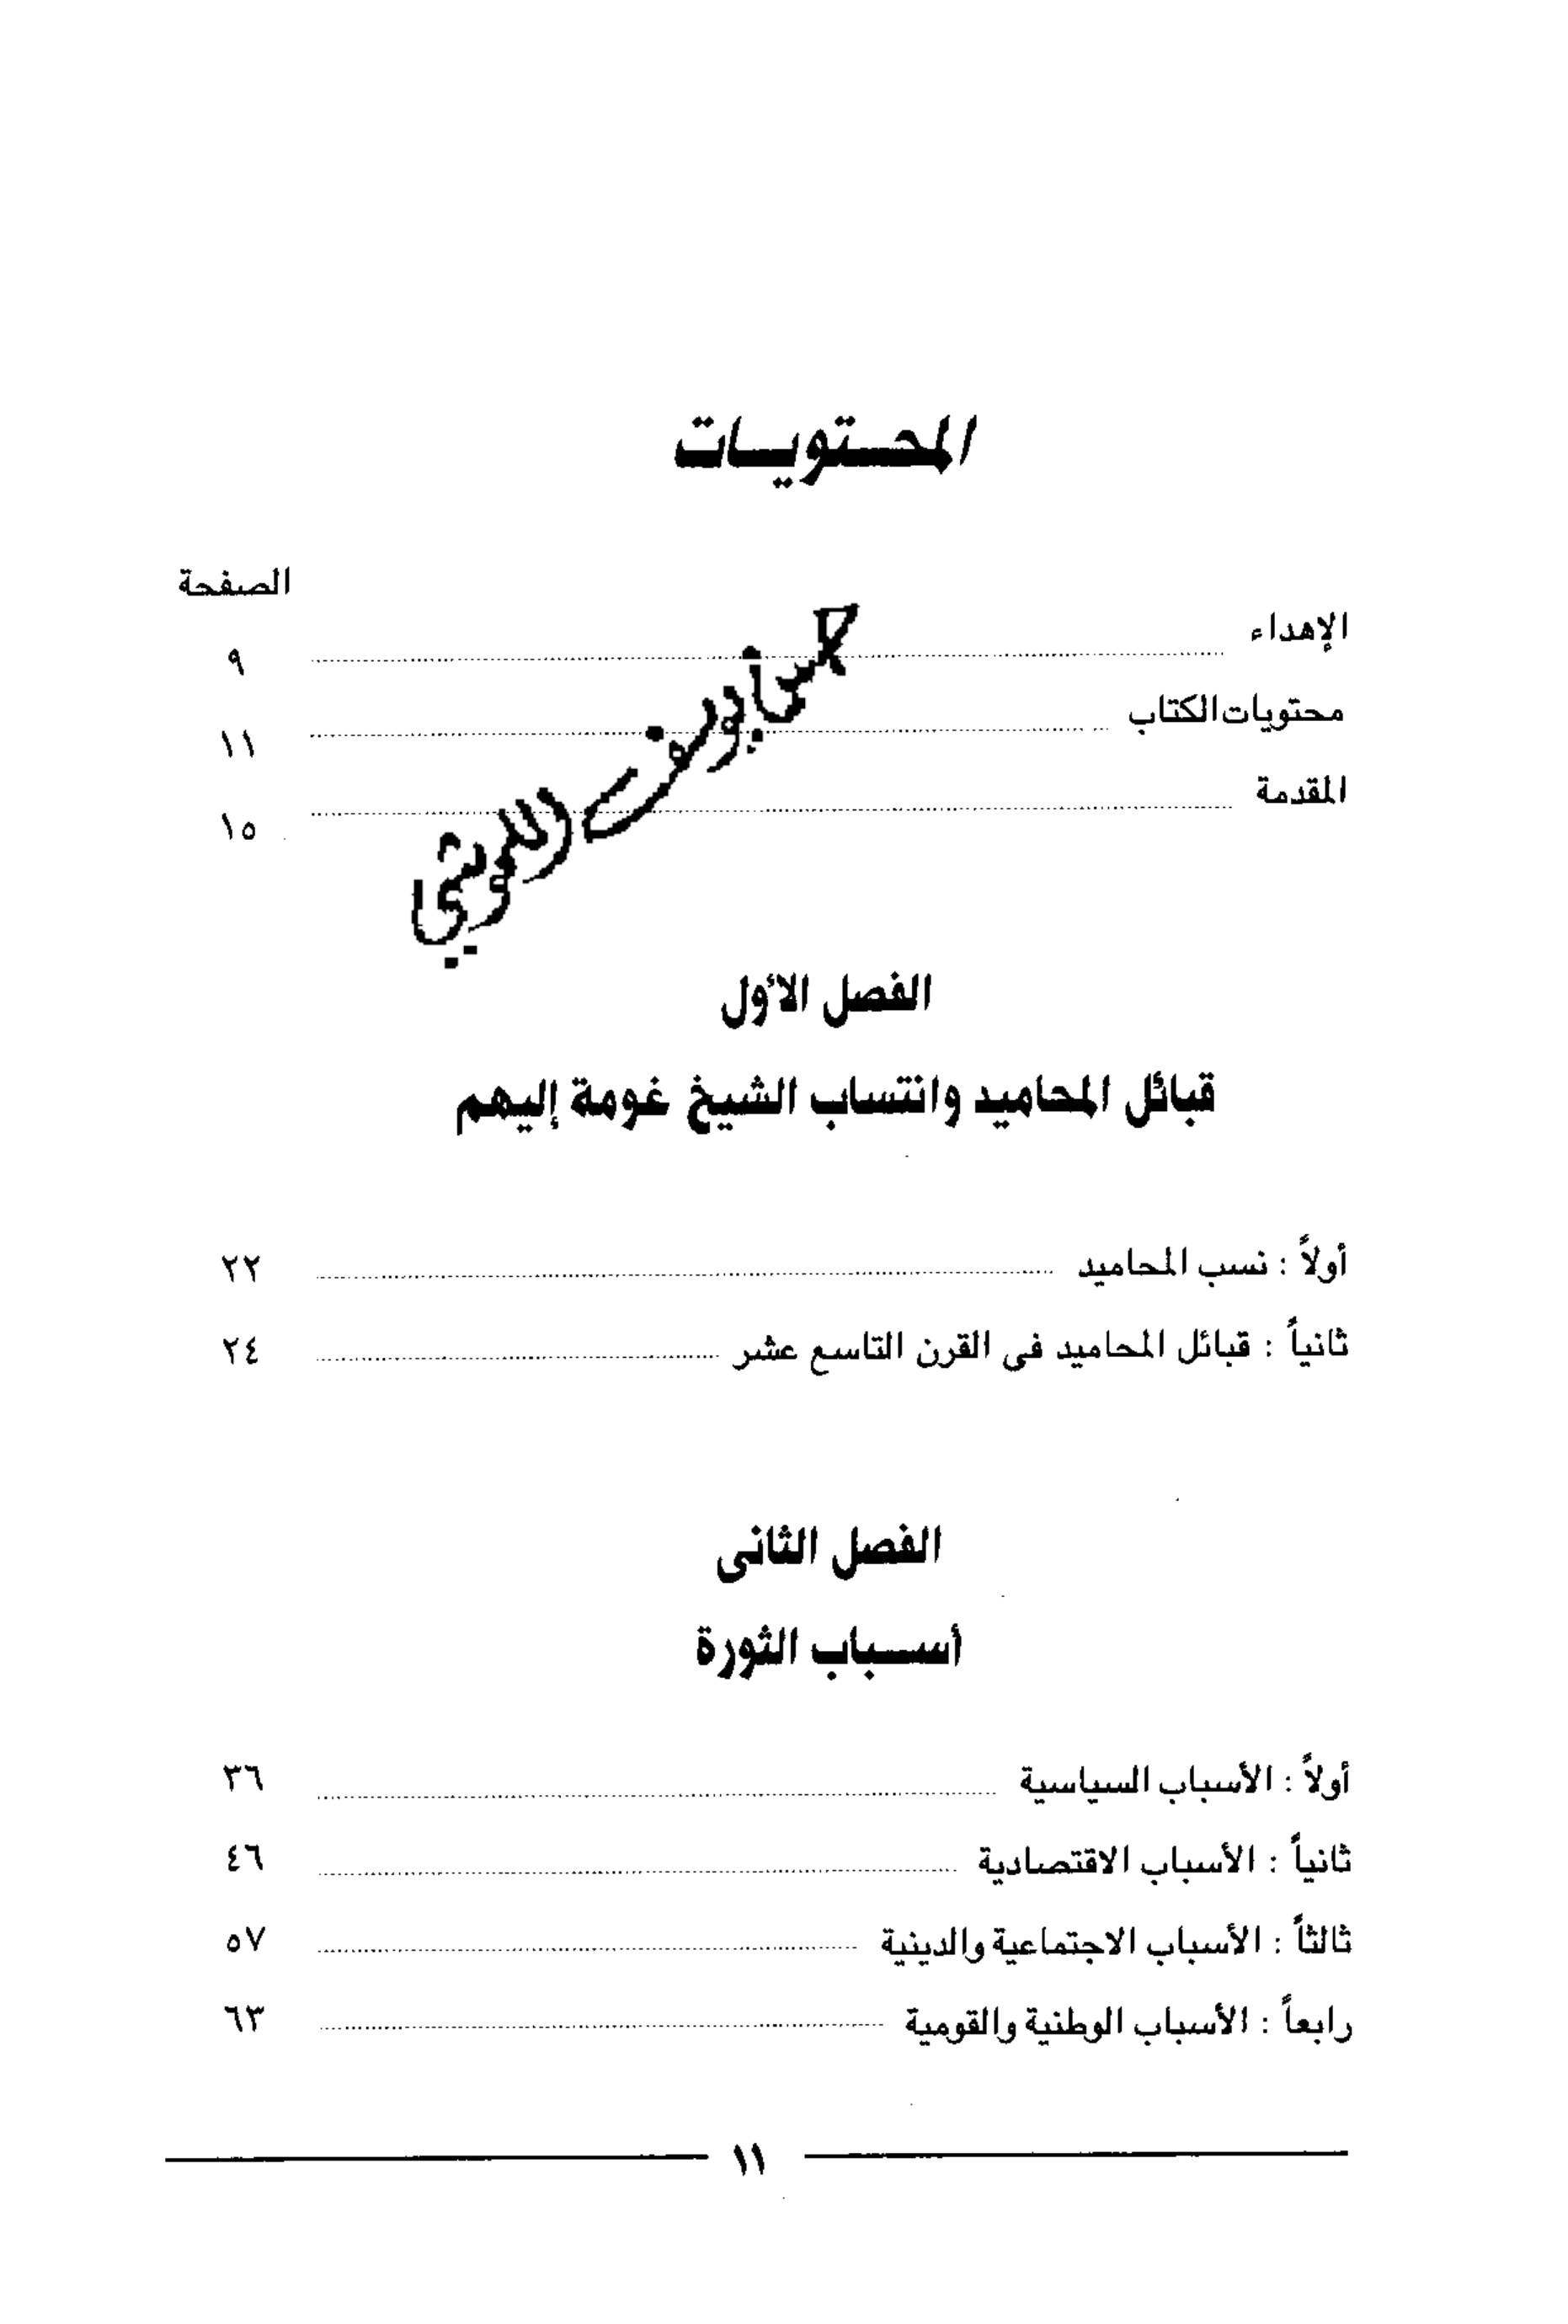 المحتويات
الصفحة
الإهداء ٩
محتويات الكتاب ١١
المقدمة ١٥
الفصل الأول
قبائل المحاميد وانتساب الشيخ غومة إليهم
أولاً : نسب المحاميد ٢٢
ثانياً : قبائل المحاميد فى القرن التاسع عشر ٢٤
الفصل الثانى
أسباب الثورة
أولاً : الأسباب السياسية ٣٦
ثانياً : الأسباب الاقتصادية ٤٦
ثالثاً : الأسباب الاجتماعية والدينية ٥٧
رابعاً : الأسباب الوطنية والقومية ٦٣
١١